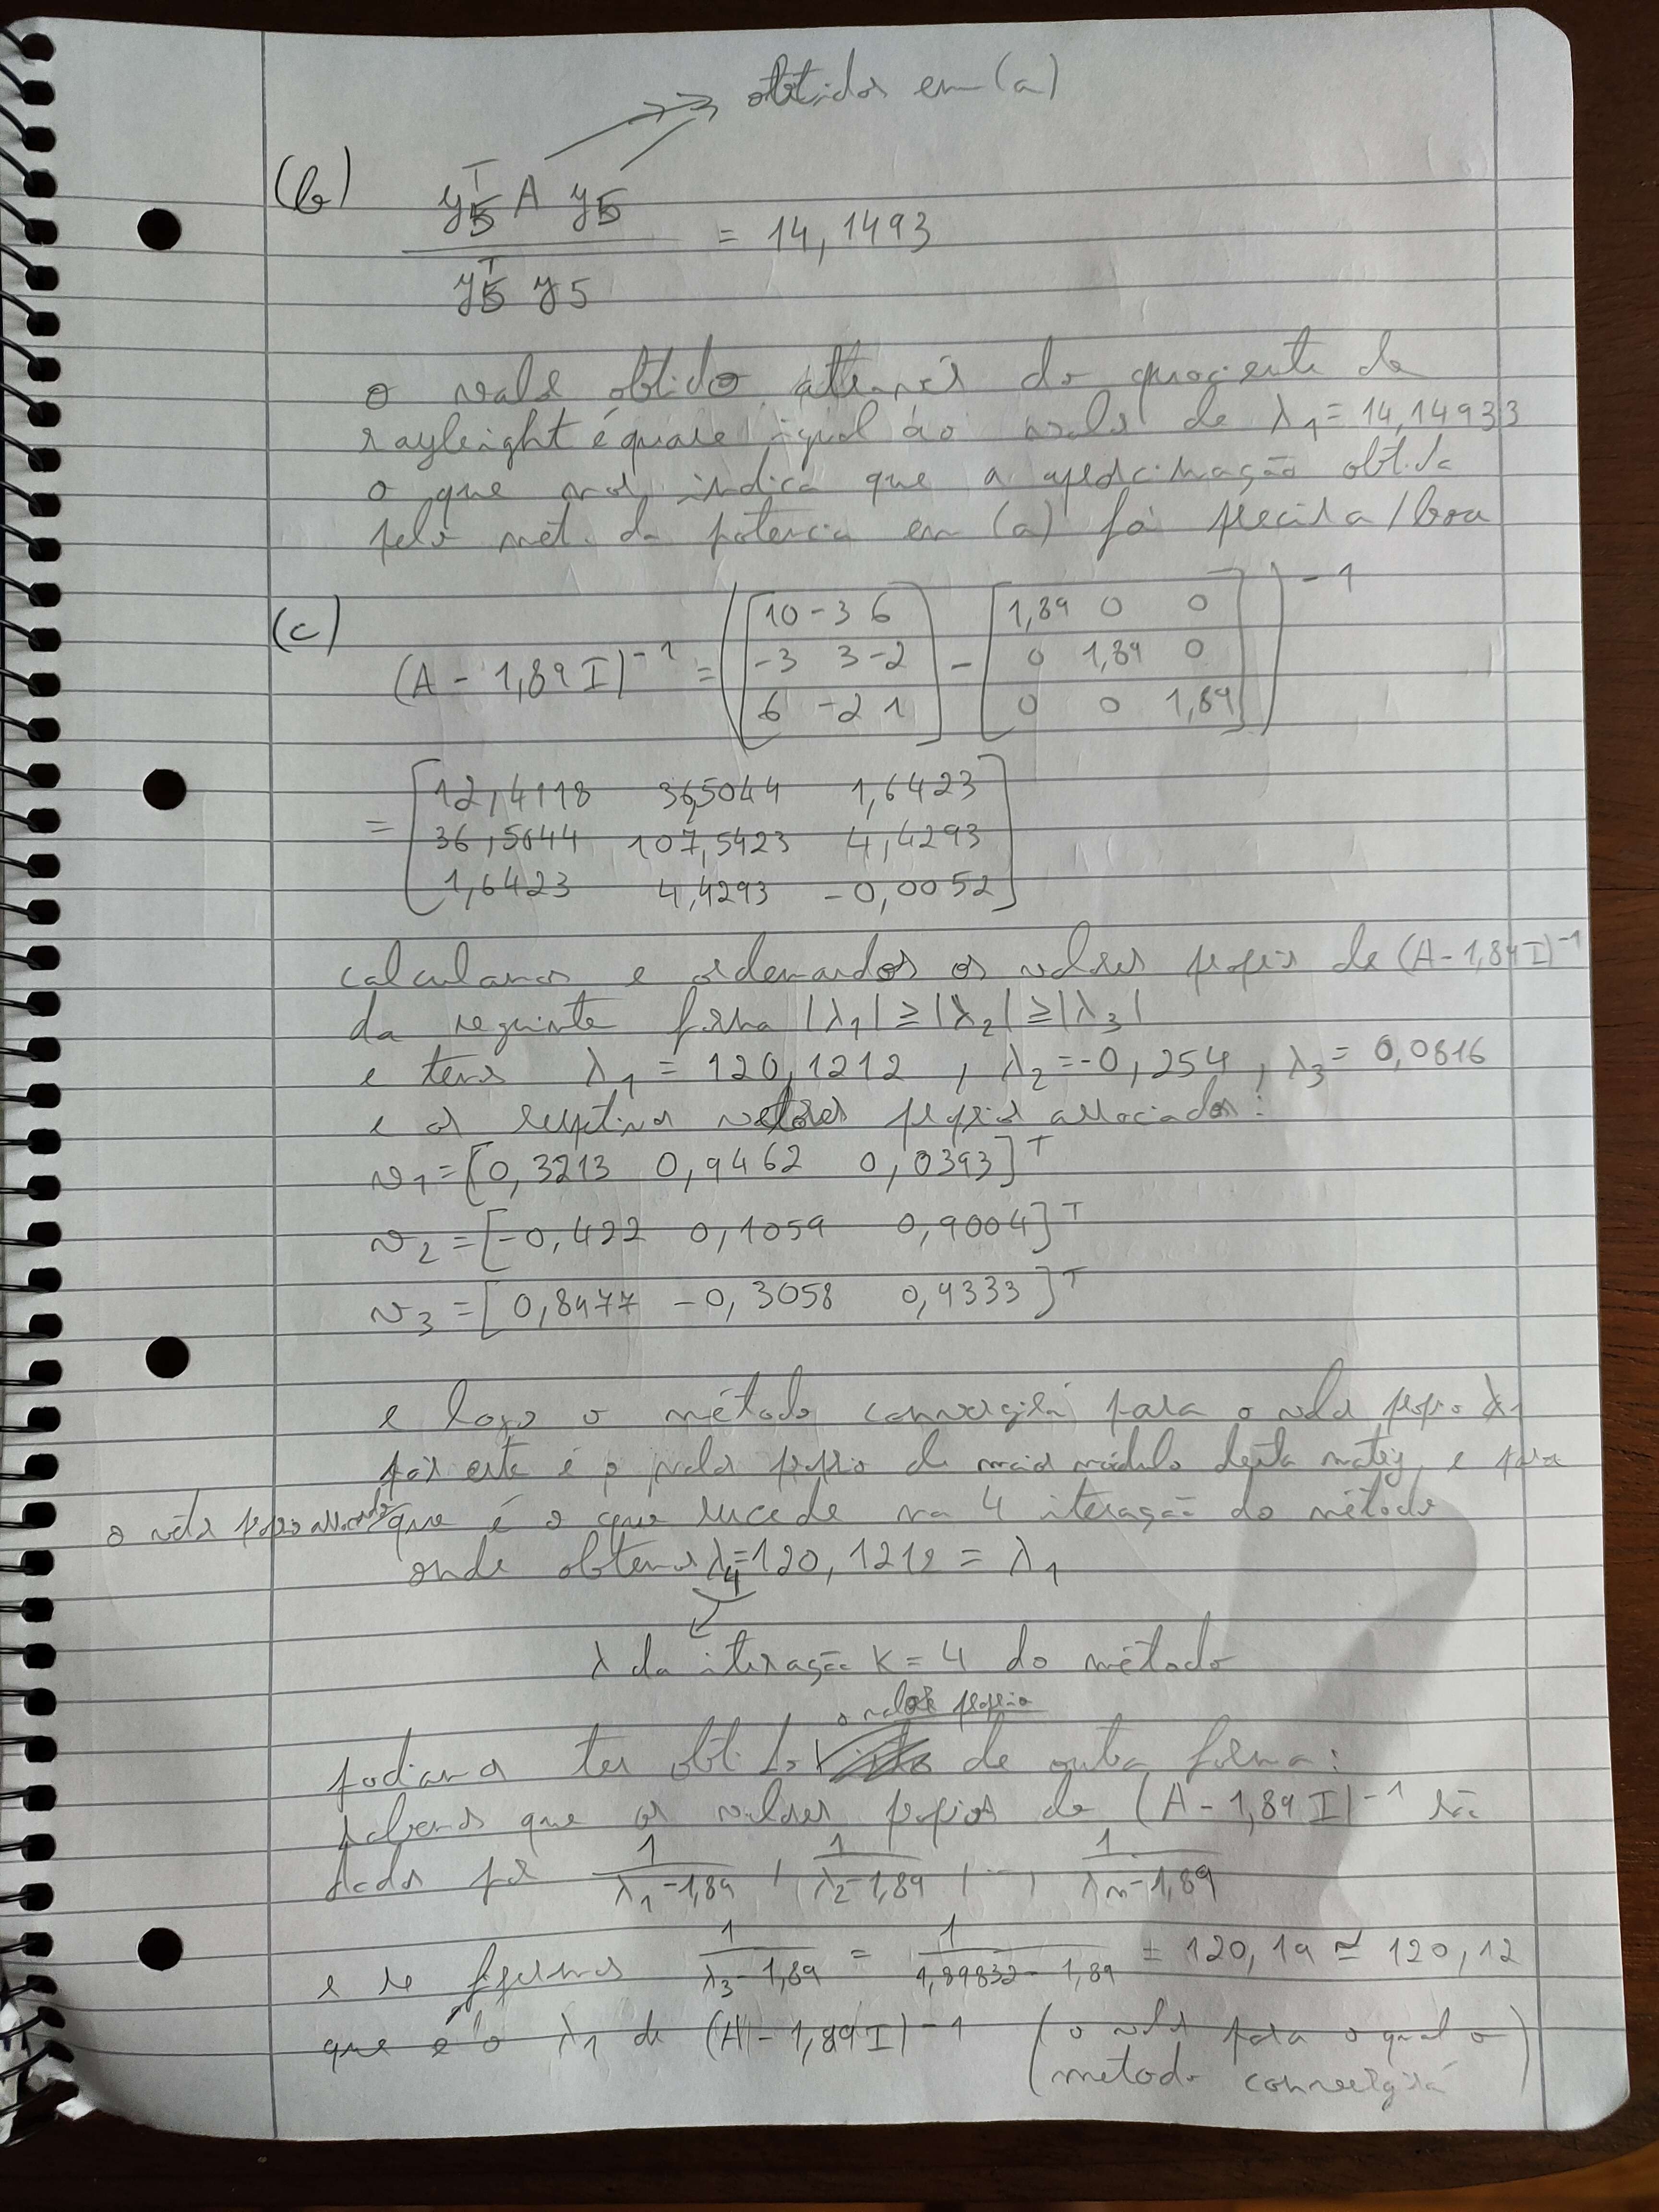 obtidos em (a)
(b) y5^T A y5 / y5^T y5 = 14,1493
o valor obtido através do quociente de
rayleight é quase igual ao valor de λ1 = 14,14933
o que nos indica que a aproximação obtida
pelo mét. da potência em (a) foi precisa/boa
(c) (A - 1,89 I)^-1 = ([10 -3 6; -3 3 -2; 6 -2 1] - [1,89 0 0; 0 1,89 0; 0 0 1,89])^-1
= [12,4118 36,5044 1,6423
36,5044 107,5423 4,4293
1,6423 4,4293 -0,0052]
calculamos e ordenandos os valores próprios de (A - 1,89 I)^-1
da seguinte forma |λ1| ≥ |λ2| ≥ |λ3|
e temos λ1 = 120,1212 , λ2 = -0,254 , λ3 = 0,0816
e os respetivos vetores próprios associados:
v1 = [0,3213 0,9462 0,0393]^T
v2 = [-0,422 0,1059 0,9004]^T
v3 = [0,8477 -0,3058 0,4333]^T
e logo o método convergirá para o valor próprio λ1
pois este é o valor próprio de maior módulo desta matriz, e para
o vetor próprio associado que é o que sucede na 4 iteração do método
onde obtemos λ4 = 120,1212 = λ1
λ da iteração k = 4 do método
o valor próprio
podiamos ter obtido de outra forma:
sabemos que os valores próprios de (A - 1,89 I)^-1 são
dados por 1/(λ1 - 1,89) , 1/(λ2 - 1,89) , ... , 1/(λn - 1,89)
e se fizermos 1/(λ3 - 1,89) = 1/(1,89832 - 1,89) = 120,19 ≃ 120,12
que é o λ1 de (A - 1,89 I)^-1 (o valor para o qual o
metodo convergirá)